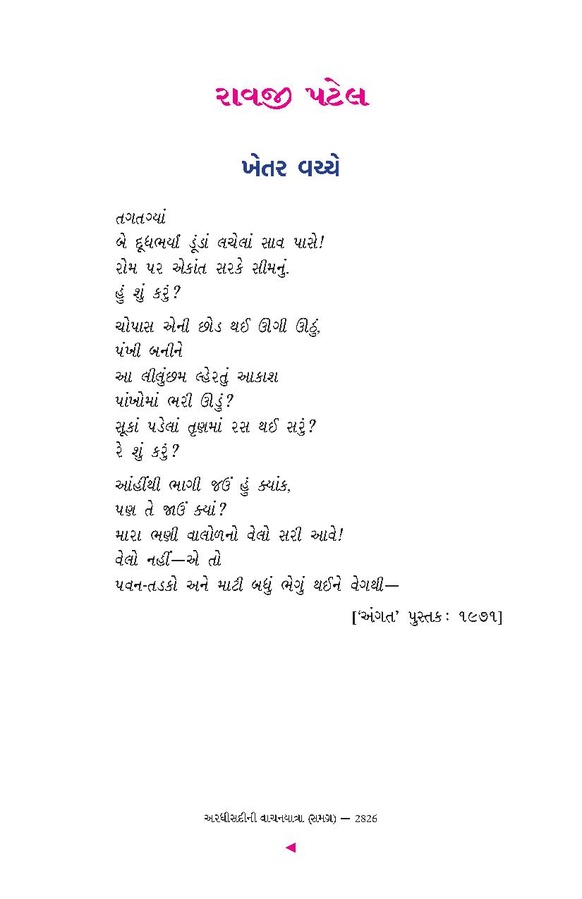 રાવજી પટેલ
ખેતર વચ્ચે
તગતગ્યાં
બે દૂધભર્યાં ડૂંડાં લચેલાં સાવ પાસે!
રોમ પર એકાંત સરકે સીમનું.
હું શું કરું?
ચોપાસ એની છોડ થઈ ઊગી ઊઠું,
પંખી બનીને
આ લીલુંછમ લ્હેરતું આકાશ
પાંખોમાં ભરી ઊડું?
સૂકાં પડેલાં તૃણમાં રસ થઈ સરું?
રે શું કરું?
આંહીંથી ભાગી જઉં હું ક્યાંક,
પણ તે જાઉં ક્યાં?
મારા ભણી વાલોળનો વેલો સરી આવે!
વેલો નહીં—એ તો
પવન-તડકો અને માટી બધું ભેગું થઈને વેગથી—
[‘અંગત’ પુસ્તક: ૧૯૭૧]
અરધીસદીની વાચનયાત્રા (સમગ્ર) — 2826